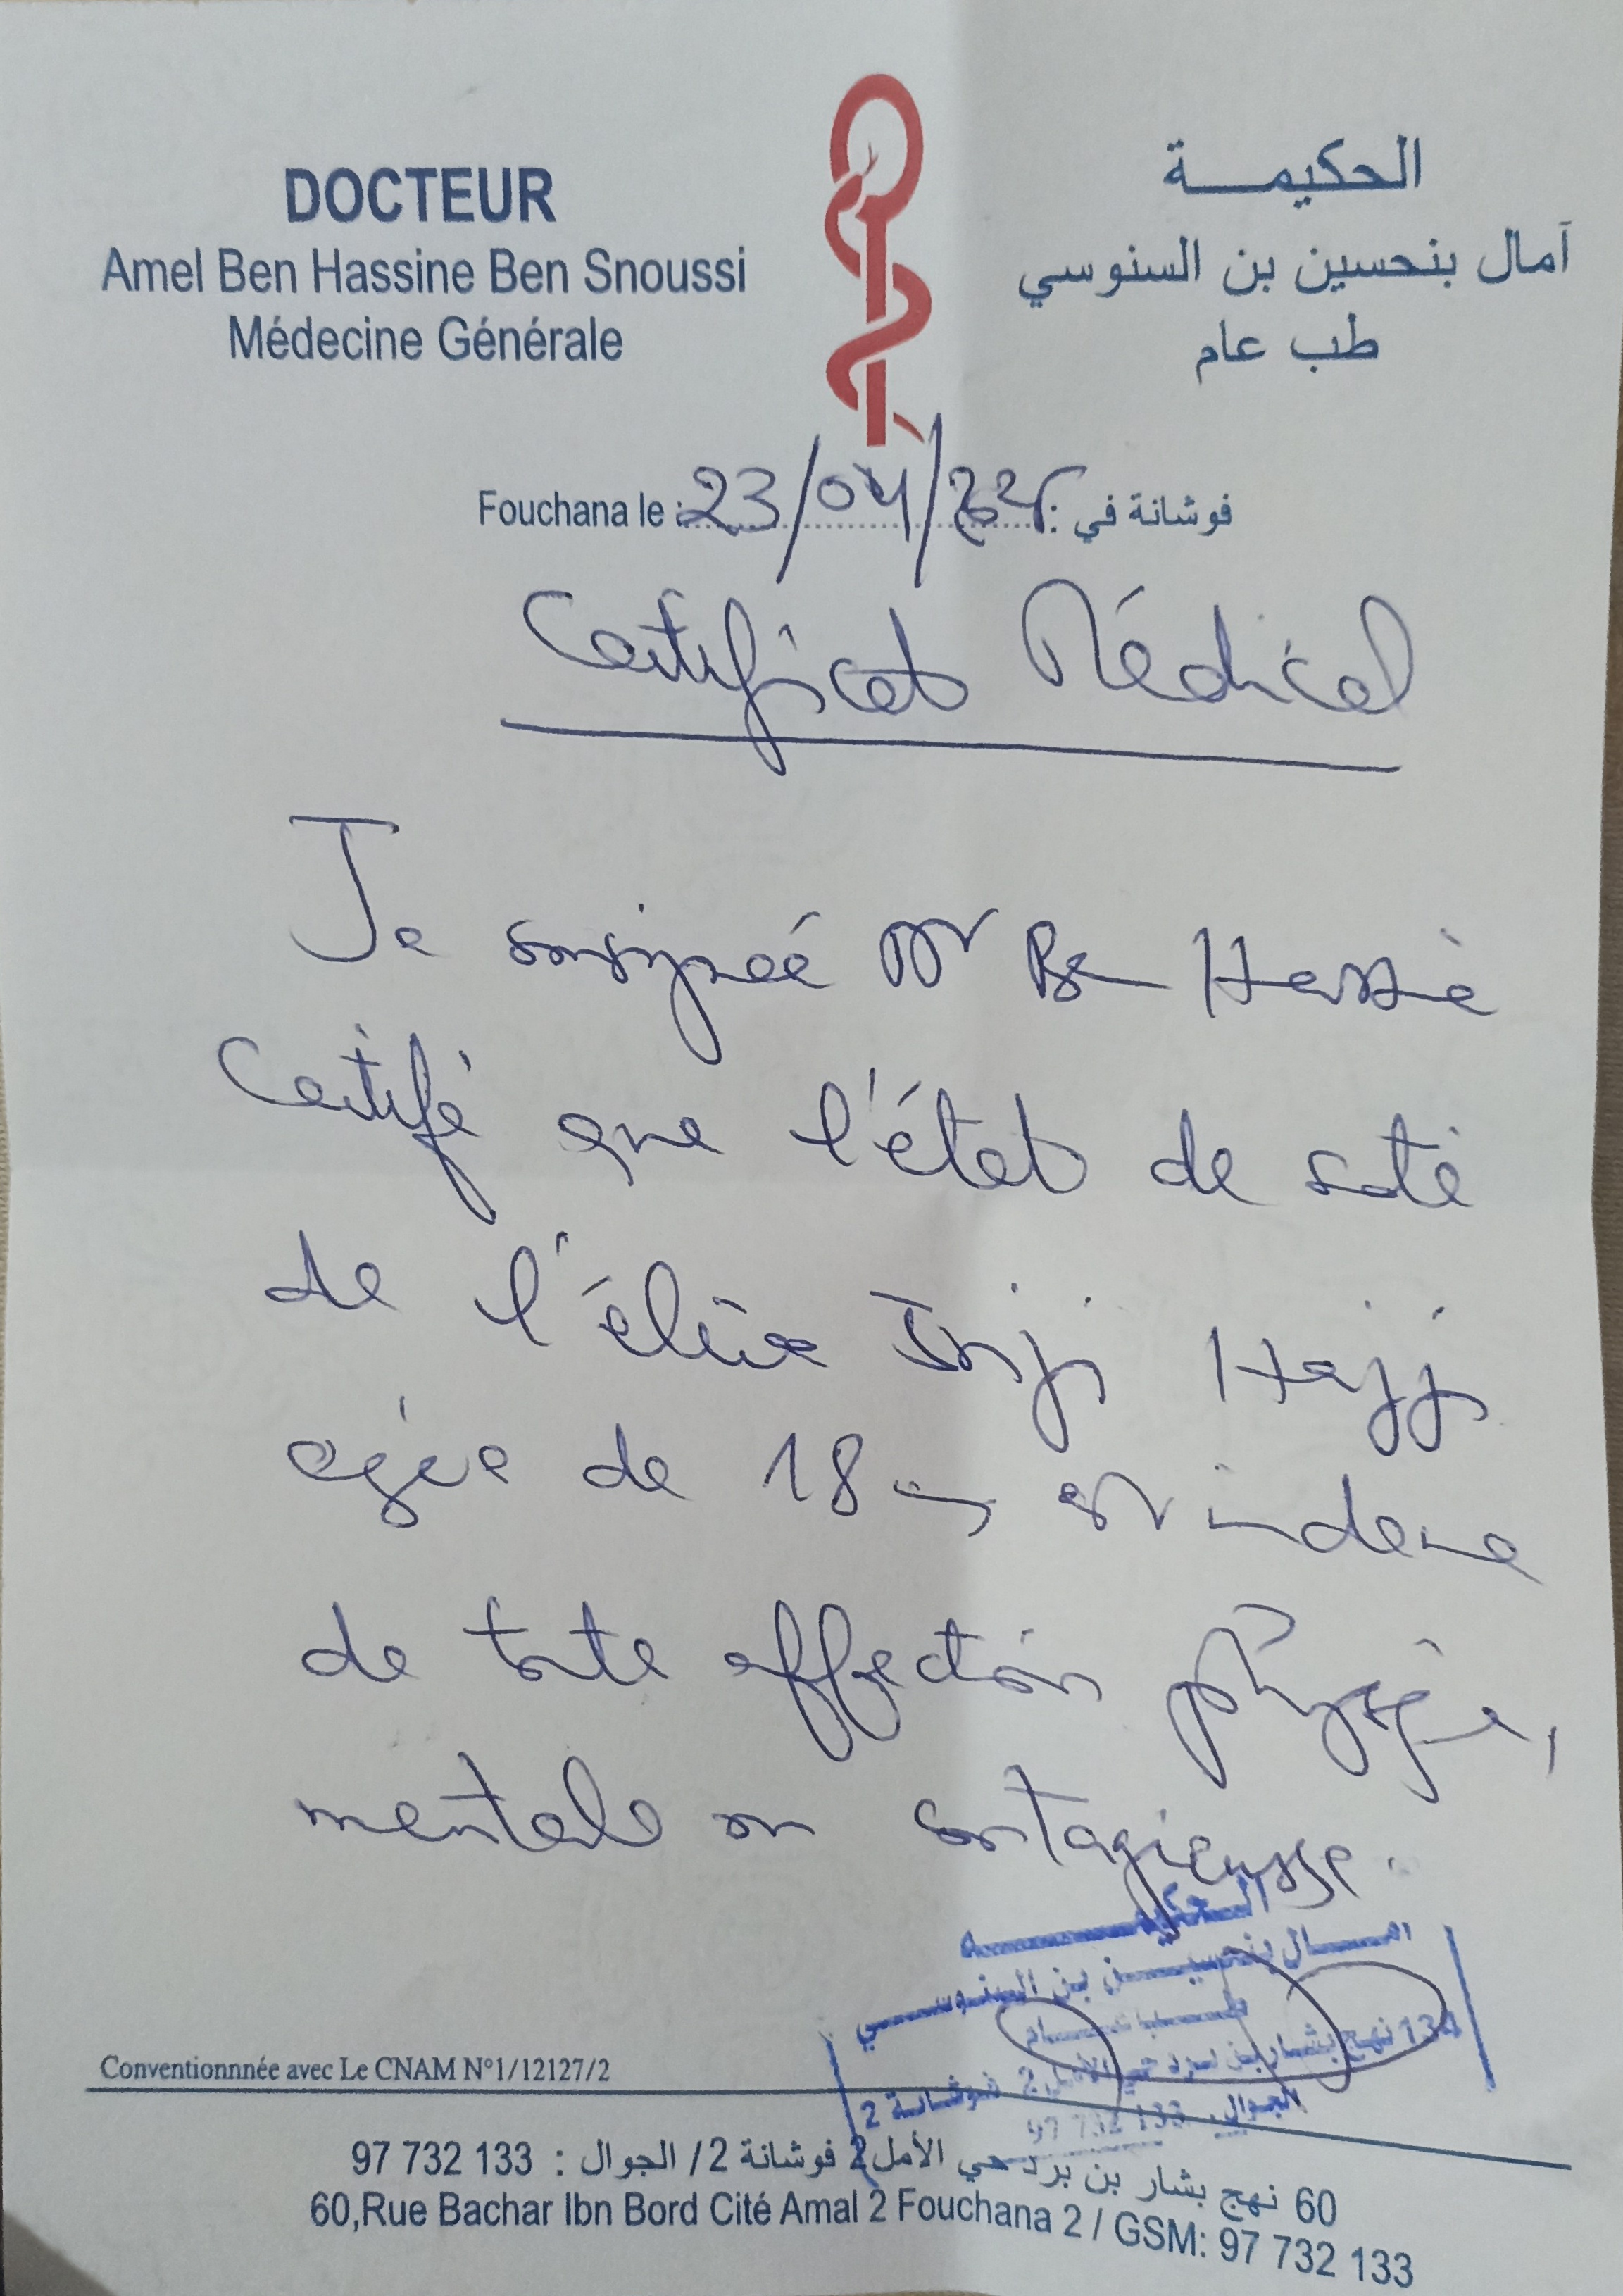 DOCTEUR
Amel Ben Hassine Ben Snoussi
Médecine Générale
الحكيمـــة
آمال بنحسين بن السنوسي
طب عام
Fouchana le : 23/04/ فوشانة في :
Certificat Médical
Je soussignée Dr Ben Hassine
Certifie que l'état de santé
de l'élève Inji Hajji
agée de 18 ans est indemne
de toute affection physique,
mentale ou contagieuse.
الحكيمـــة
امـــال بنحسيـــن بن السنوســـي
طـــب عـــام
134 نهج بشار بن برد حي الأمل 2 فوشانة 2
الجوال: 97 732 133
Conventionnnée avec Le CNAM N°1/12127/2
60 نهج بشار بن برد حي الأمل 2 فوشانة 2 / الجوال : 133 732 97
60,Rue Bachar Ibn Bord Cité Amal 2 Fouchana 2 / GSM: 97 732 133